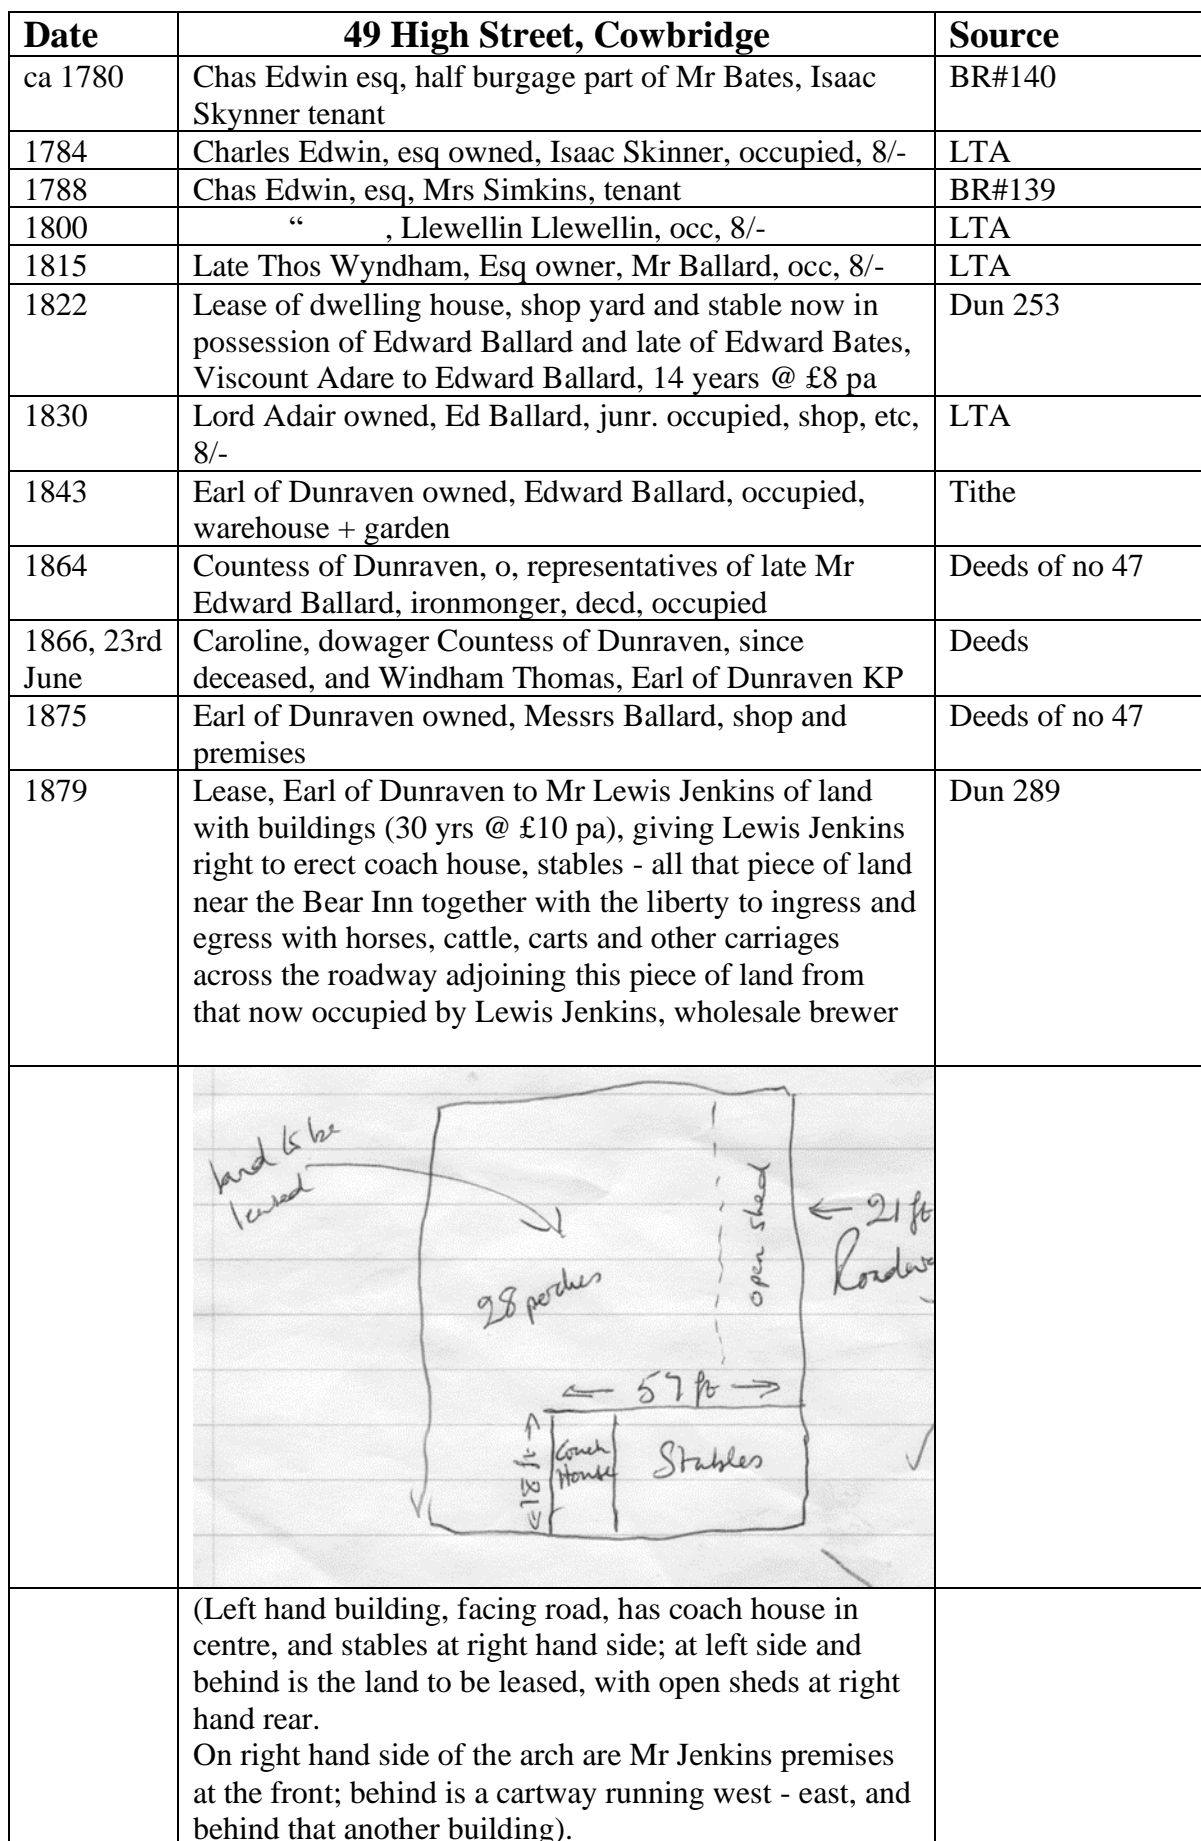 Date 49 High Street, Cowbridge Source
ca 1780 Chas Edwin esq, half burgage part of Mr Bates, Isaac BR#140
Skynner tenant
1784 Charles Edwin, esq owned, Isaac Skinner, occupied, 8/- LTA
1788 Chas Edwin, esq, Mrs Simkins, tenant BR#139
1800 “ , Llewellin Llewellin, occ, 8/- LTA
1815 Late Thos Wyndham, Esq owner, Mr Ballard, occ, 8/- LTA
1822 Lease of dwelling house, shop yard and stable now in Dun 253
possession of Edward Ballard and late of Edward Bates,
Viscount Adare to Edward Ballard, 14 years @ £8 pa
1830 Lord Adair owned, Ed Ballard, junr. occupied, shop, etc, LTA
8/-
1843 Earl of Dunraven owned, Edward Ballard, occupied, Tithe
warehouse + garden
1864 Countess of Dunraven, o, representatives of late Mr Deeds of no 47
Edward Ballard, ironmonger, decd, occupied
1866, 23rd Caroline, dowager Countess of Dunraven, since Deeds
June deceased, and Windham Thomas, Earl of Dunraven KP
1875 Earl of Dunraven owned, Messrs Ballard, shop and Deeds of no 47
premises
1879 Lease, Earl of Dunraven to Mr Lewis Jenkins of land Dun 289
with buildings (30 yrs @ £10 pa), giving Lewis Jenkins
right to erect coach house, stables - all that piece of land
near the Bear Inn together with the liberty to ingress and
egress with horses, cattle, carts and other carriages
across the roadway adjoining this piece of land from
that now occupied by Lewis Jenkins, wholesale brewer
land to be
leased
open shed
← 21 ft
28 perches
← 57 ft →
Coach
House
Stables
(Left hand building, facing road, has coach house in
centre, and stables at right hand side; at left side and
behind is the land to be leased, with open sheds at right
hand rear.
On right hand side of the arch are Mr Jenkins premises
at the front; behind is a cartway running west - east, and
behind that another building).